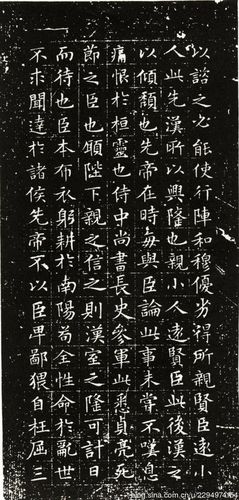 以諮之必能使行陣和穆優劣得所親賢臣遠小
人此先漢所以興隆也親小人遠賢臣此後漢之
以傾頹也先帝在時每與臣論此事未嘗不嘆息
痛恨於桓靈也侍中尚書長史參軍此悉貞亮死
節之臣也願陛下親之信之則漢室之隆可計日
而待也臣本布衣躬耕於南陽苟全性命於亂世
不求聞達於諸侯先帝不以臣卑鄙猥自枉屈三